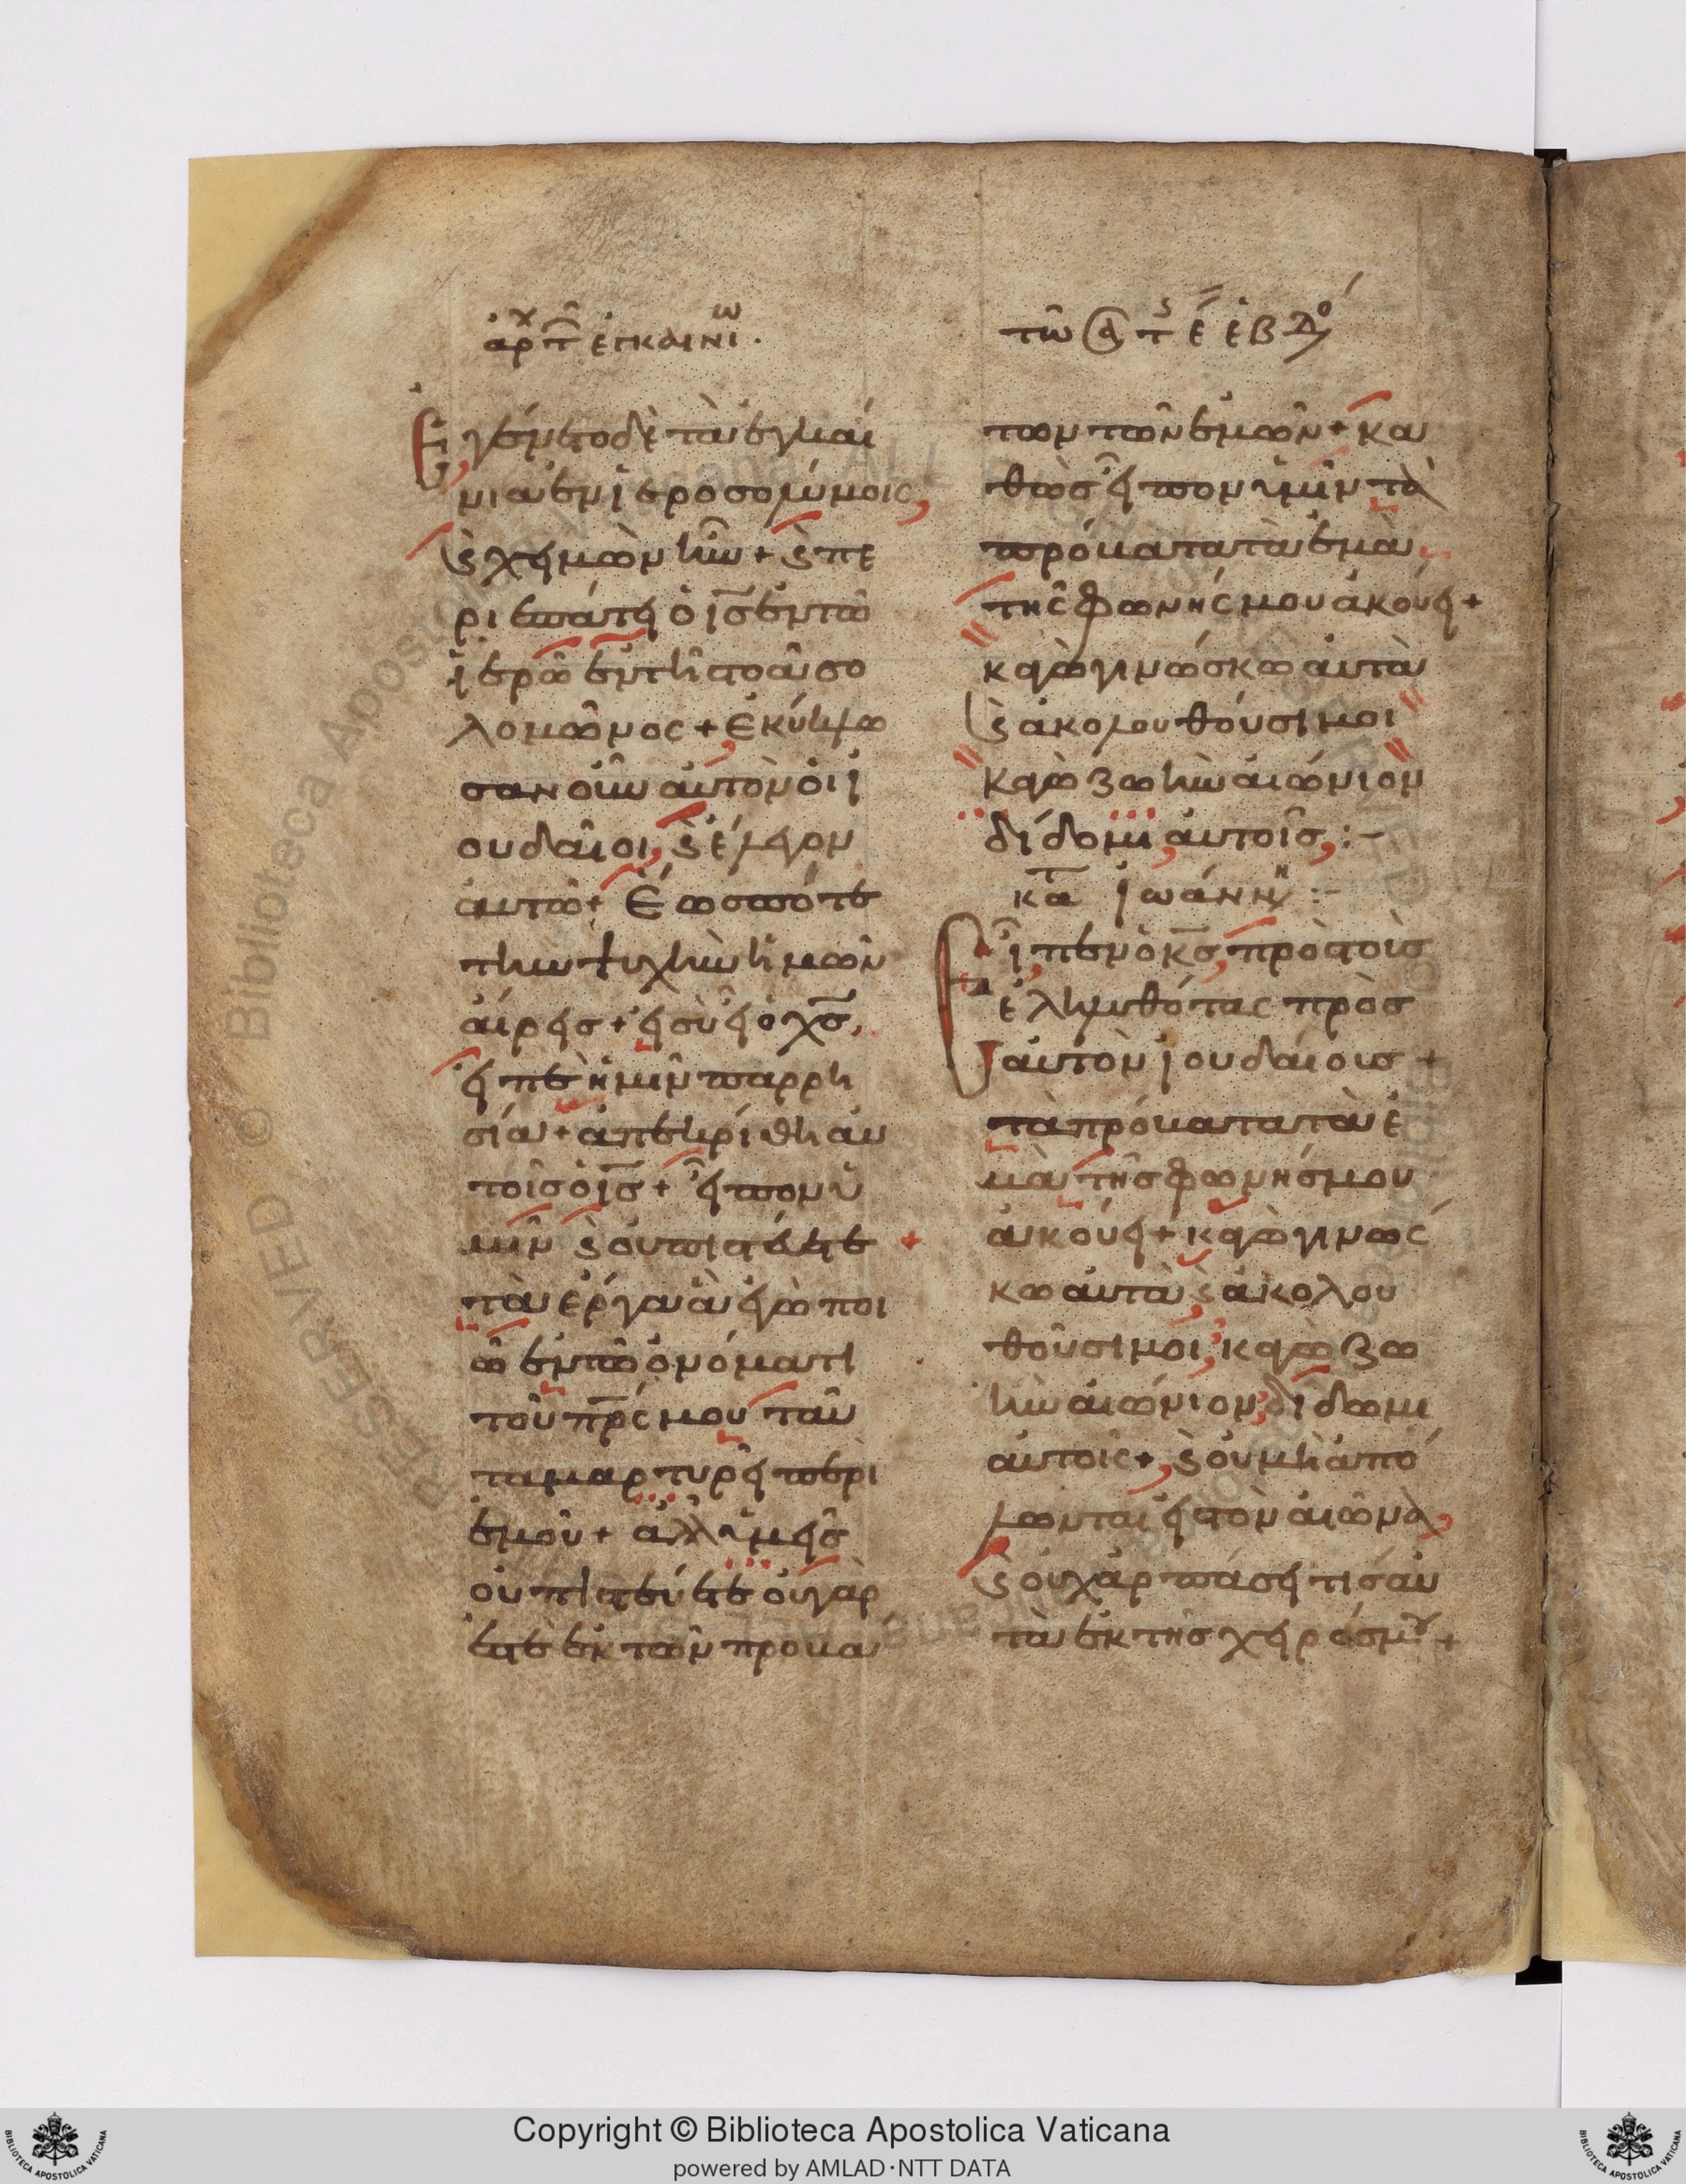 ἀρχ τ ἐγκαινι ω.
Ἐγένετο δὲ τὰ ἐγκαί
νια ἐν ἱεροσολύμοις,
ϛ χειμὼν ἦν + ϛ πε
ριεπάτει ὁ ις ἐν τῶ
ἱερῶ ἐν τῆ στοᾶ σο
λομῶνος + ἐκύκλω
σαν οὖν αὐτὸν οἱ ἰ
ουδαῖοι, ϛ ἔλεγον
αὐτῶ + Ἕως πότε
τὴν ψυχὴν ἡμῶν
αἴρεις + εἰ σὺ εἶ ὁ χς,
εἰπὲ ἡμῖν παρρη
σία + ἀπεκρίθη αυ
τοῖς ὁ ις + εἶπον ὑ
μῖν ϛ οὐ πιστεύετε +
τὰ ἔργα ἃ ἐγὼ ποι
ῶ ἐν τῶ ὀνόματι
τοῦ πρς μου ταῦ
τα μαρτυρεῖ περὶ
ἐμοῦ + ἀλλ ὑμεῖς
οὐ πιστεύετε οὐ γάρ
ἐστὲ ἐκ τῶν προβα
τῶ Α τ ϛ ε ἑβδο
των τῶν ἐμῶν + κα
θὼς εἶπον ὑμῖν τὰ
πρόβατα τὰ ἐμὰ
τῆς φωνῆς μου ἀκούει +
κἀγὼ γινώσκω αὐτὰ
ϛ ἀκολουθοῦσί μοι
κἀγὼ ζωὴν αἰώνιον
δίδωμι αὐτοῖς, :-
κατ ἰωάννην :-
Εἶπεν ὁ κς, πρὸς τοὺς
ἐληλυθότας πρὸς
αὐτὸν ἰουδαίους +
τὰ πρόβατα τὰ ἐ
μὰ τῆς φωνῆς μου
ἀκούει + κἀγὼ γινώς
κω αὐτὰ ϛ ἀκολου
θοῦσί μοι, κἀγὼ ζω
ὴν αἰώνιον, δίδωμι
αὐτοῖς +, ϛ οὐ μὴ ἀπό
λωνται εἰς τὸν αἰῶνα,
ϛ οὐχ ἁρπάσει τις αὐ
τὰ ἐκ τῆς χειρός μου +
Copyright © Biblioteca Apostolica Vaticana
powered by AMLAD·NTT DATA